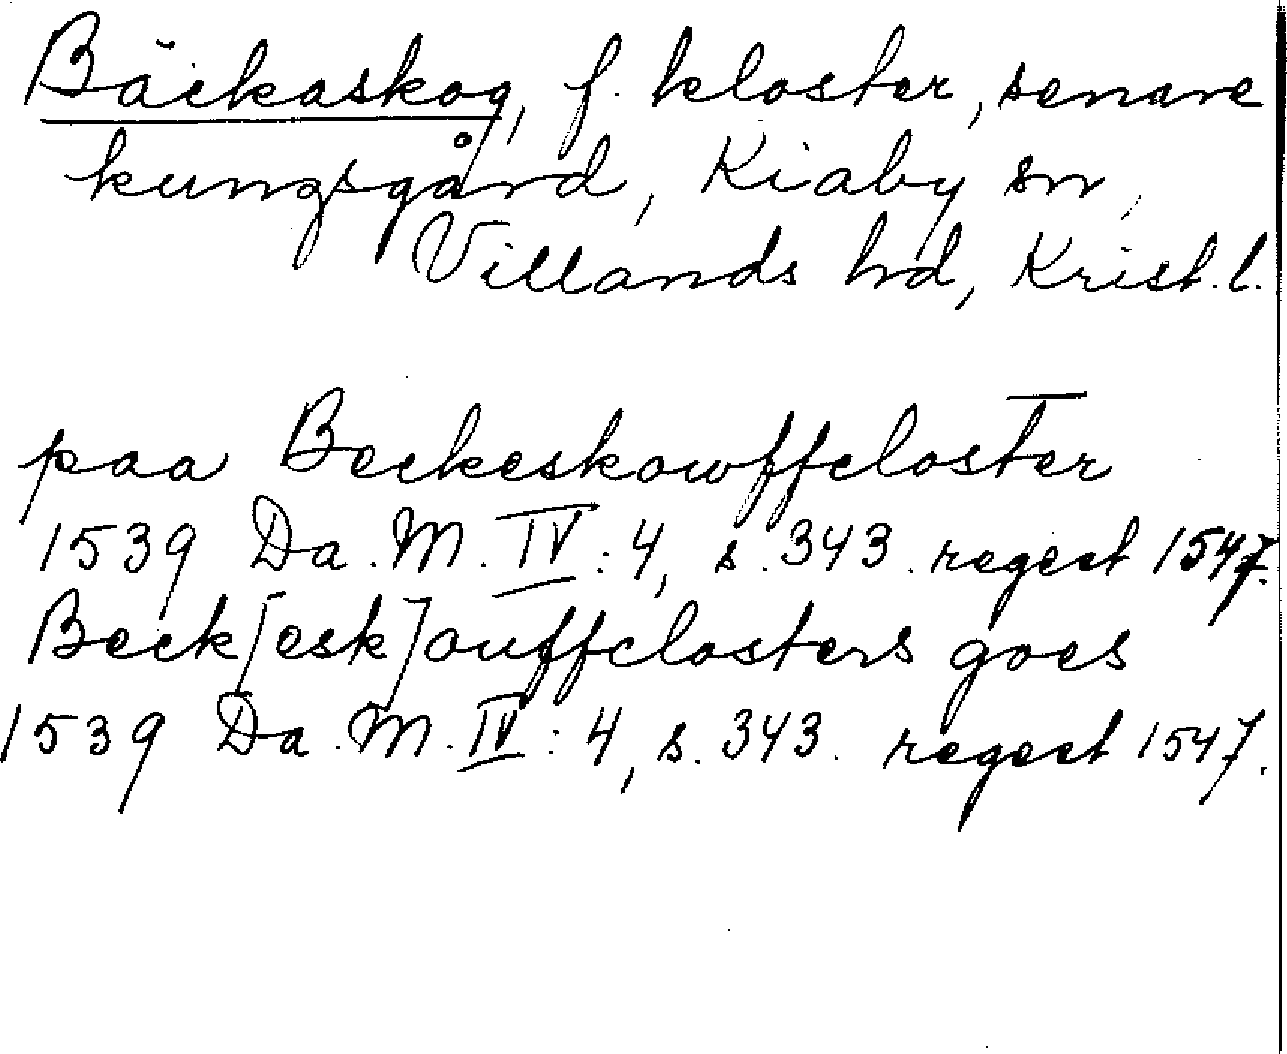 Bäckaskog, f. kloster, senare
kungsgård, Kiaby sn,
Villands hd, Krist. l.
paa Beckeskowffcloster
1539 Da. M. IV : 4, s. 343. regest 1547.
Beck[esk]ouffclosters goes
1539 Da. M. IV : 4, s. 343. regest 1547.